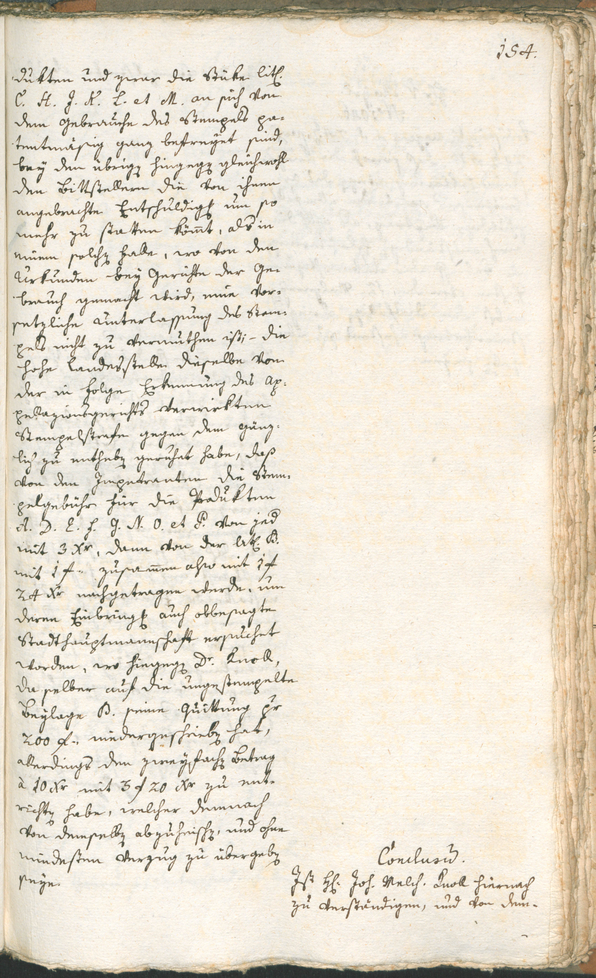 154.
dukten und zwar die Stüke lit.
C. H. J. K. L. et M. an sich von
dem Gebrauche des Stempels pa-
tentmäsig ganz befreyet sind,
bey den übrigen hingegen gleichwohl
den Bittstellern die von ihnen
angebrachte Entschuldigung um so
mehr zu statten kömt, als in
einem solchen falle, wo von den
Urkunden bey Gerichte der Ge-
brauch gemacht wird, eine vor-
setzliche Unterlassung des Stem-
pels nicht zu vermuthen ist; die
hohe Landesstelle dieselbe von
der in folge Erkennung des Ap-
pellazionsgerichts verwirkten
Stempelstrafe gegen dem gänz-
lich zu entheben geruhet habe, daß
von den Impetranten die Stem-
pelgebühr für die Produkten
A. D. E. F. G. N. O. et P. von jed
mit 3 Xr, dann von der lit. B.
mit 1 f. zusamen also mit 1 f
24 Xr nachgetragen werde, um
deren Einbringung auch obbesagte
Stadthauptmannschaft ersuchet
worden, wo hingegen Dr. Knoll,
da selber auf die ungestempelte
Beylage B. seine Quittung pr
200 f. niedergeschrieben hat,
allerdings den zweyfachen Betrag
à 10 Xr mit 3 f 20 Xr zu ent-
richten habe, welcher demnach
von demselben abzuheischen, und ohne
mindesten Verzug zu übergeben
seye.
Conclusum.
Ist H. Joh. Melch. Knoll hiernach
zu verständigen, und von dem-